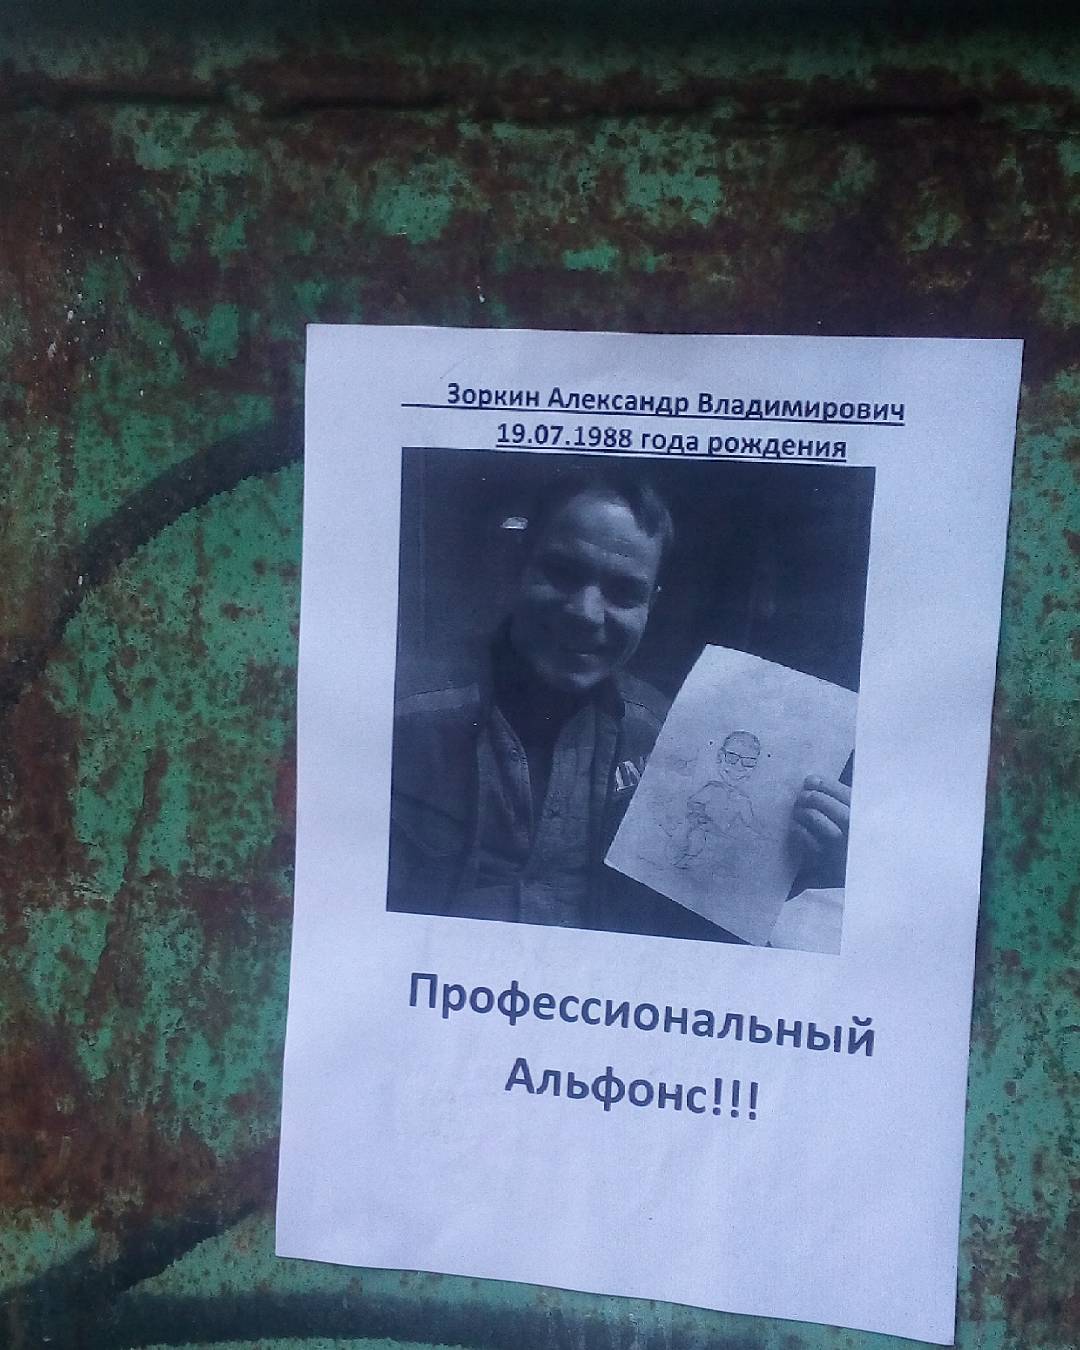 Зоркин Александр Владимирович
19.07.1988 года рождения
Профессиональный
Альфонс!!!